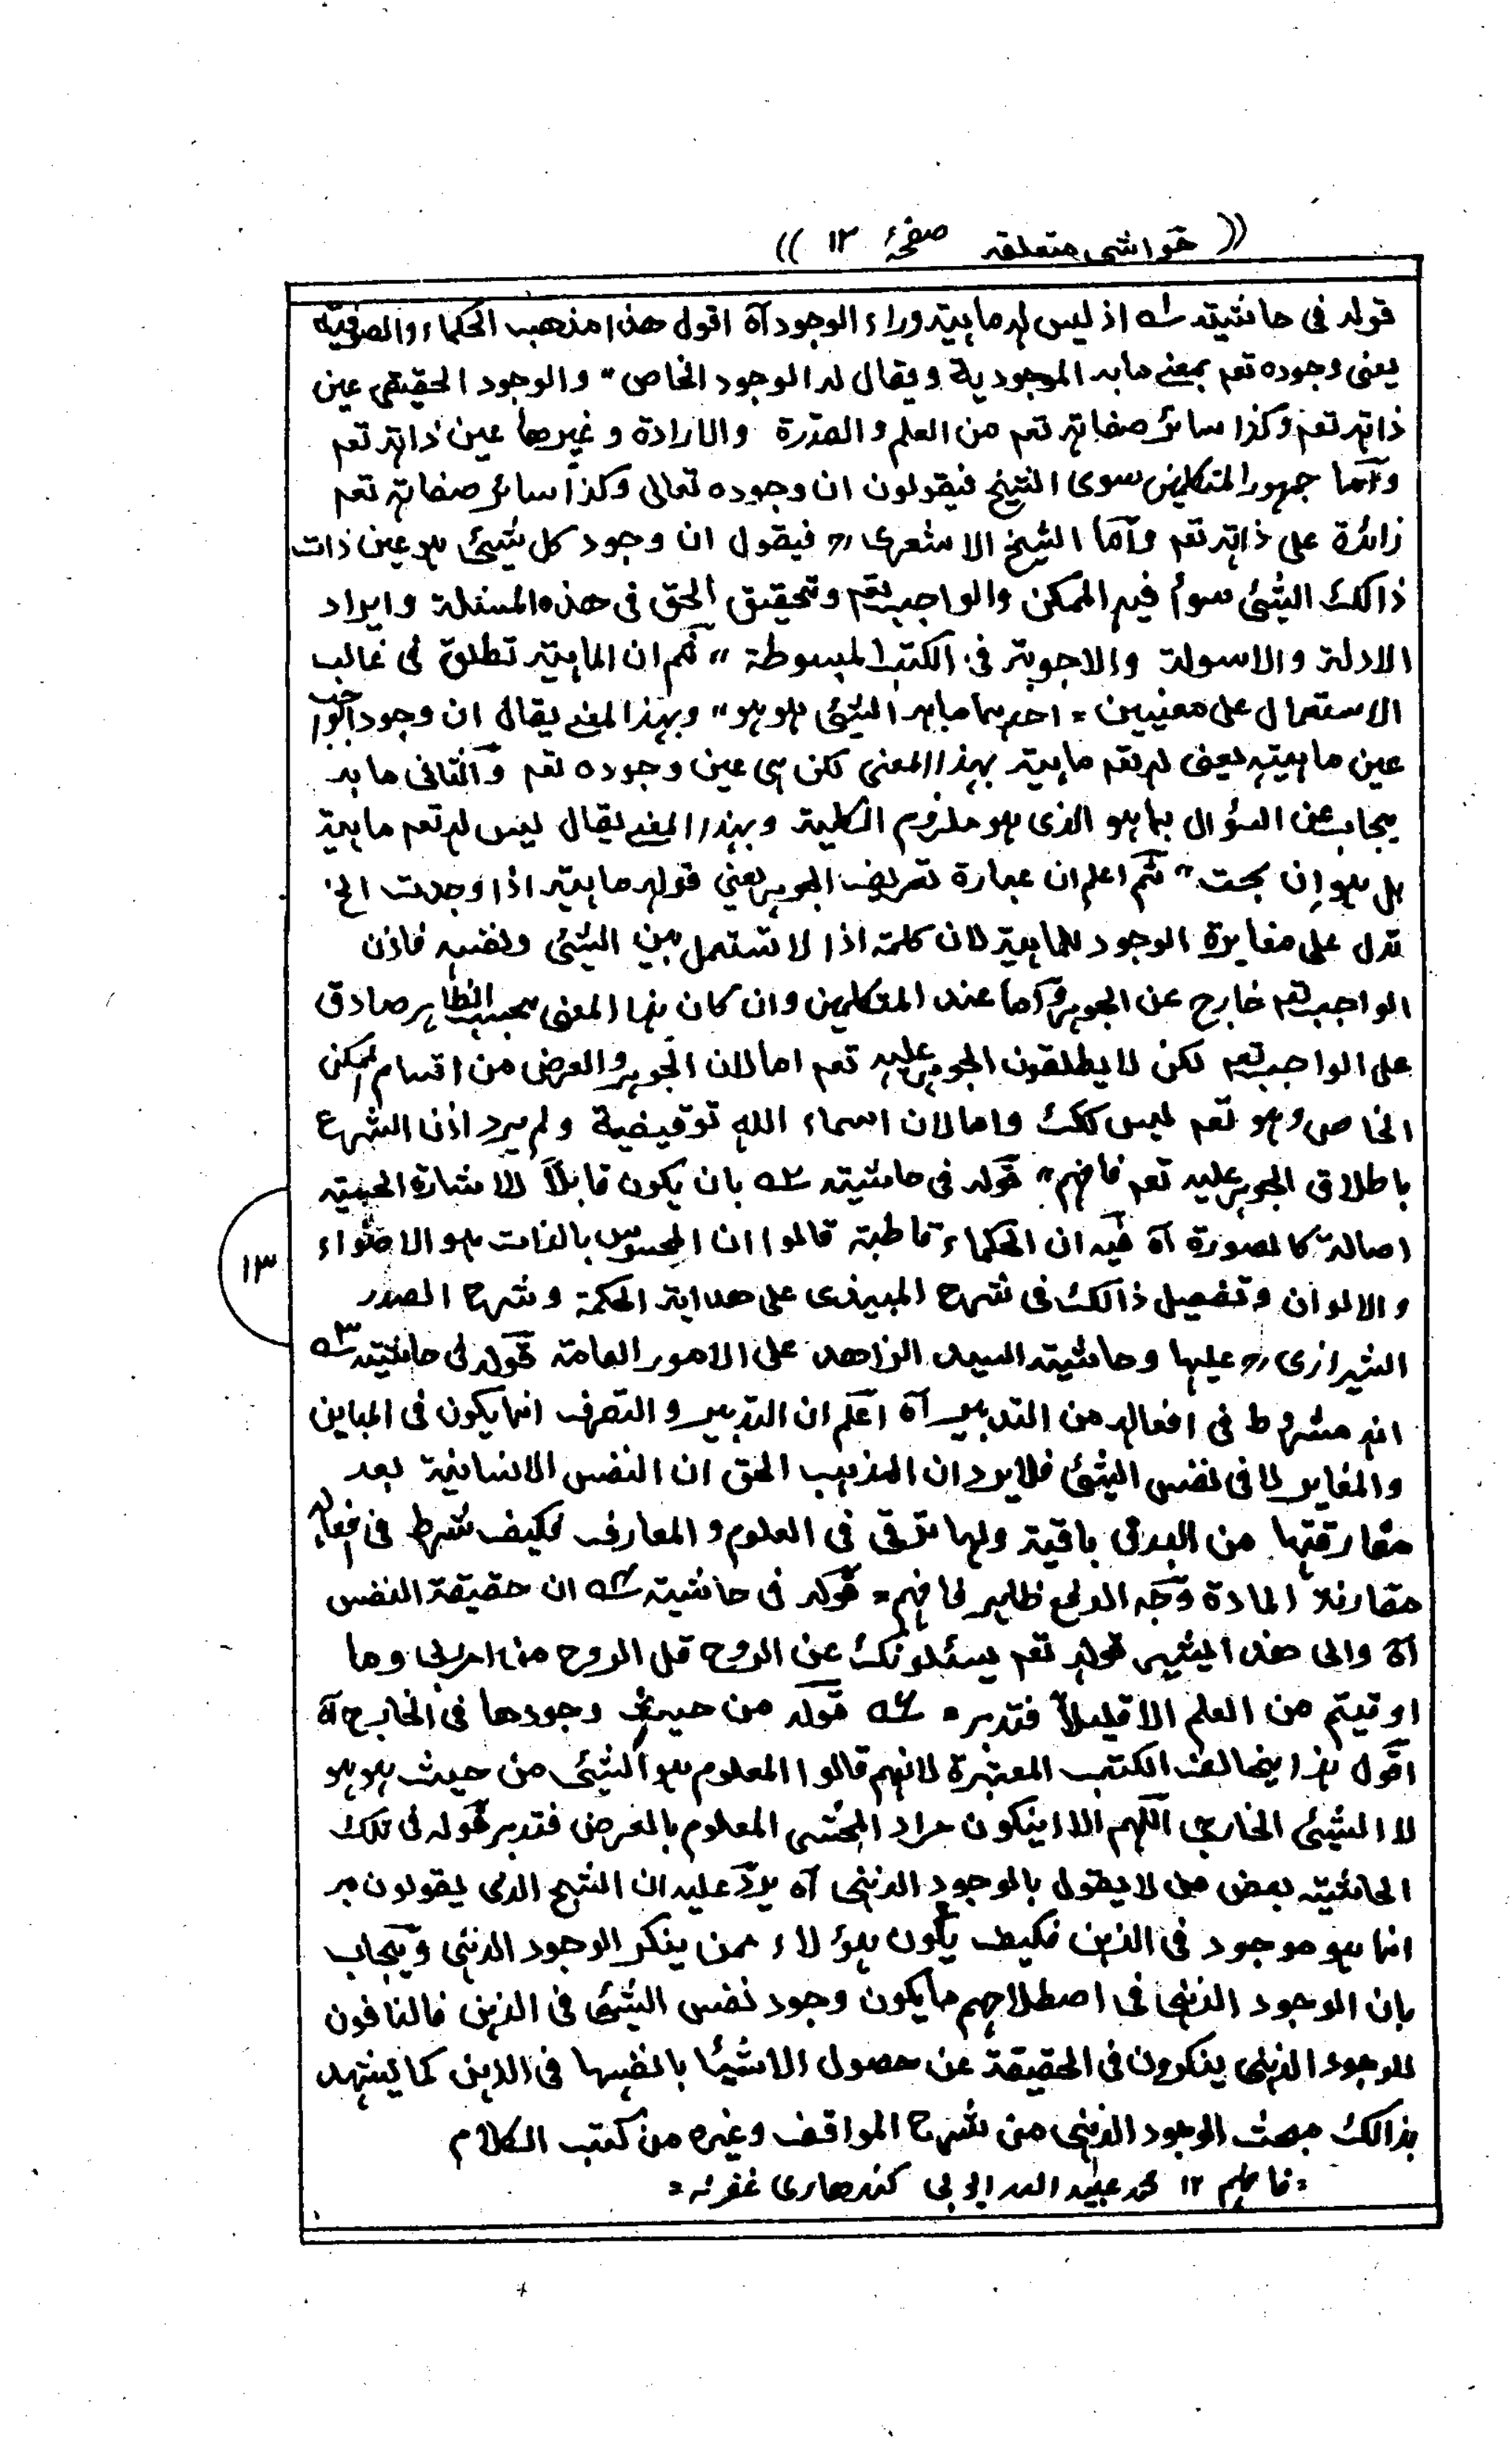 (( حواشی متعلقه صفحهٔ ١٣ ))
قوله فی حاشیته ١ه اذ لیس له ماهیة وراء الوجود آه اقول هذا مذهب الحکماء والصوفیة
یعنی وجوده تعم بمعنے مابه الموجودیة ویقال له الوجود الخاص " والوجود الحقیقی عین
ذاته تعم وکذا سائر صفاته تعم من العلم والقدرة والارادة وغیرها عین ذاته تعم
وآما جمهور المتکلمین سوی الشیخ فیقولون ان وجوده تعالی وکذا سائر صفاته تعم
زائدة علی ذاته تعم وآما الشیخ الاشعری رح فیقول ان وجود کل شیئ هو عین ذات
ذالک الشیئ سواء فیه الممکن والواجب تعم وتحقیق الحق فی هذه المسئلة وایراد
الادلة والاسولة والاجوبة فی الکتب المبسوطة " ثم ان الماهیة تطلق فی غالب
الاستعمال علی معنیین = احدهما مابه الشیئ هو هو " وبهذا المعنے یقال ان وجود الواجب
عین ماهیته یعنی له تعم ماهیة بهذا المعنی لکن هی عین وجوده تعم والثانی مابه
یجاب عن السؤال بما هو الذی هو ملزوم الکلیة وبهذا المعنے یقال لیس له تعم ماهیة
بل هو اِن بحت " ثم اعلم ان عبارة تعریف الجوهر یعنی قوله ماهیة اذا وجدت الخ
تدل علی مغایرة الوجود للماهیة لان کلمة اذا لا تستعمل بین الشیئ ونفسه فاذن
الواجب تعم خارج عن الجوهر وآما عند المتکلمین وان کان هذا المعنی بحسب الظاهر صادق
علی الواجب تعم لکن لا یطلقون الجوهر علیه تعم اما لان الجوهر والعرض من اقسام الممکن
الخاص وهو تعم لیس کک واما لان اسماء الله توقیفیة ولم یرد اذن الشرع
باطلاق الجوهر علیه تعم فافهم " قوله فی حاشیته ٢ه بان یکون قابلاً للاشارة الحسیة
اصالة کالصورة آه فیه ان الحکماء قاطبة قالوا ان المحسوس بالذات هو الاضواء
١٣
والالوان وتفصیل ذالک فی شرح المیبذی علی هدایة الحکمة وشرح الصدر
الشیرازی رح علیها وحاشیة السید الزاهد علی الامور العامة قوله فی حاشیته ٣ه
انه مشروط فی افعاله من التدبیر آه اعلم ان التدبیر والتصرف انما یکون فی المباین
والمغایر لا فی نفس الشیئ فلا یرد ان المذهب الحق ان النفس الانسانیة بعد
مفارقتها من البدن باقیة ولها ترقی فی العلوم والمعارف فکیف شرط فی افعاله
مقارنة المادة وجه الدفع ظاهر فافهم = قوله فی حاشیته ٤ه ان حقیقة النفس
آه والی هذا یشیر قوله تعم یسئلونک عن الروح قل الروح من امر ربی وما
اوتیتم من العلم الا قلیلاً فتدبر = قوله من حیث وجودها فی الخارج آه
اقول هذا یخالف الکتب المعتبرة لانهم قالوا المعلوم هو الشیئ من حیث هو هو
لا الشیئ الخارجی اللهم الا ان یکون مراد المحشی المعلوم بالعرض فتدبر قوله فی تلک
الحاشیة بعض من لا یقول بالوجود الذهنی آه یرد علیه ان الشبح الذی یقولون به
انما هو موجود فی الذهن فکیف یکون هؤلاء ممن ینکر الوجود الذهنی ویجاب
بان الوجود الذهنی فی اصطلاحهم ما یکون وجود نفس الشیئ فی الذهن فالنافون
للوجود الذهنی ینکرون فی الحقیقة عن حصول الاشیا بانفسها فی الذهن کما یشهد
بذالک مبحث الوجود الذهنی من شرح المواقف وغیره من کتب الکلام
= فافهم ١٢ محمد عبید الله ایوبی کندهاری غفرله =